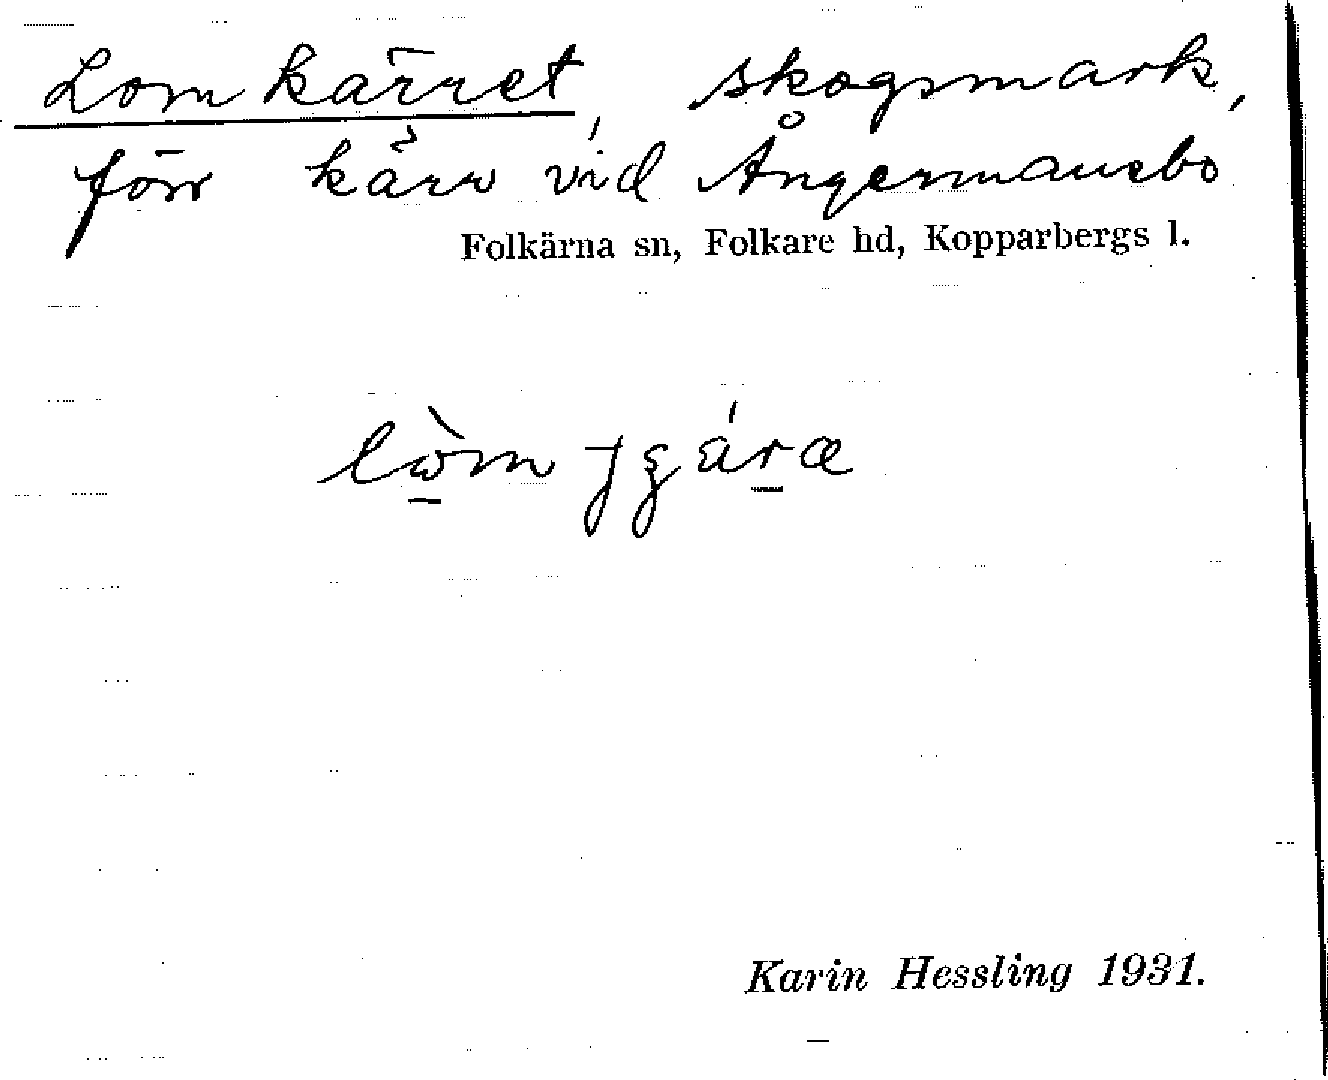 Lomkärret, skogsmark,
förr kärr vid Ångermansbo
Folkärna sn, Folkare hd, Kopparbergs l.
Karin Hessling 1931.